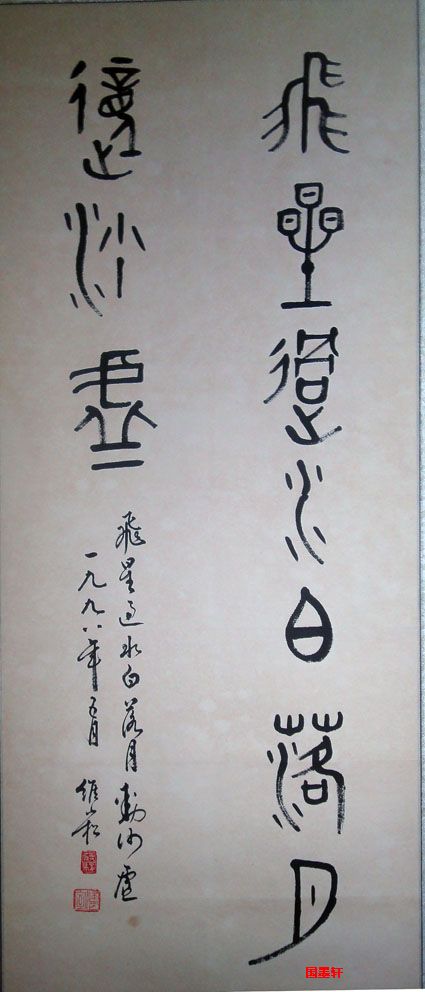 飛星過水白落月
動沙虛
飛星過水白落月動沙虛
一九九八年五月 維崧
国墨轩